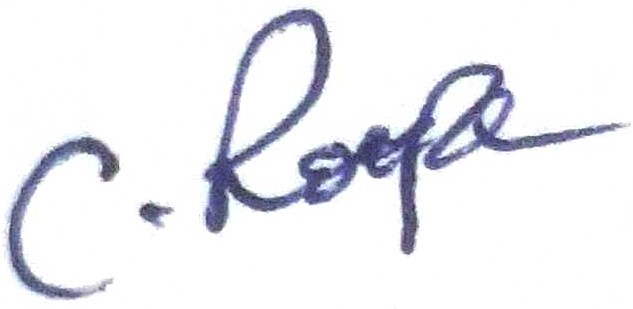 C. Roope